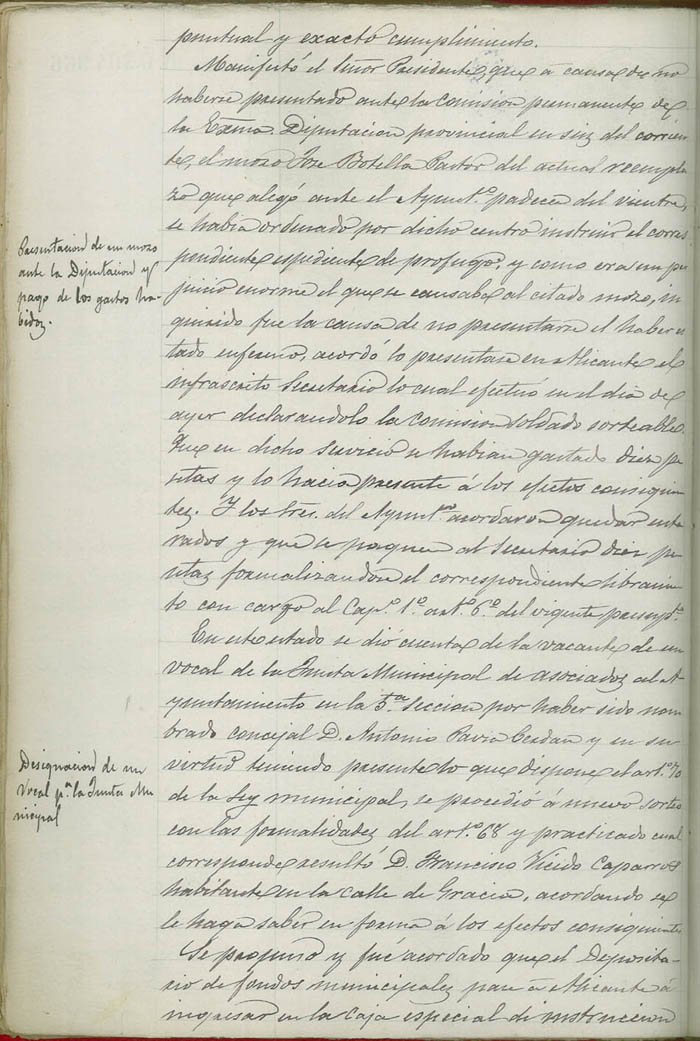 puntual y exacto cumplimiento.
Manifestó el Señor Presidente, que á causa de no
haberse presentado ante la Comision permanente de
la Exma. Diputacion provincial en seis del corrien
te, el mozo José Botella Pastor del actual reempla
zo que alegó ante el Ayunt.º padecer del vientre,
se habia ordenado por dicho centro instruir el corres
pondiente espediente de profugo, y como era un per
juicio enorme el que se causaba al citado mozo, in
quirido fue la causa de no presentarse el haber es
tado enfermo, acordó lo presentase en Alicante el
infrascrito Secretario lo cual efectuó en el dia de
ayer declarandolo la Comision soldado sorteable.
Que en dicho servicio se habian gastado diez pe
setas y lo hacia presente á los efectos consiguien
tes. Y los Sres. del Ayunt.º acordaron quedar ente
rados y que se paguen al Secretario diez pe
setas formalizandose el correspondiente libramien
to con cargo al Cap.º 1.º art.º 6.º del vigente presup.to
Presentacion de un mozo
ante la Diputacion y
pago de los gastos ha
bidos.
En este estado se dió cuenta de la vacante de un
vocal de la Junta Municipal de asociados al A
yuntamiento en la 5.ª Seccion por haber sido nom
brado concejal D. Antonio Pavia Cerdan y en su
virtud teniendo presente lo que dispone el art.º 70
de la Ley municipal, se procedió á nuevo sorteo
con las formalidades del art.º 68 y practicado cual
corresponde resultó D. Francisco Vicido Caparros
habitante en la calle de Gracia, acordando se
le haga saber en forma á los efectos consiguientes
Designacion de un
Vocal p.ª la Junta Mu
nicipal
Se propuso y fué acordado que el Deposita-
rio de fondos municipales pase á Alicante á
ingresar en la Caja especial de instruccion